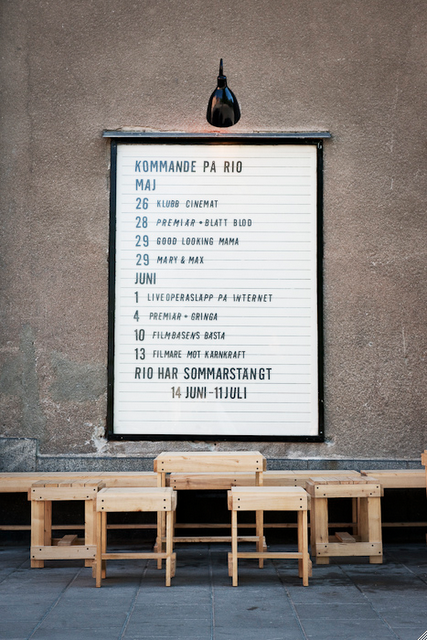 KOMMANDE PÅ RIO
MAJ
26 KLUBB CINEMAT
28 PREMIÄR - BLATT BLOD
29 GOOD LOOKING MAMA
29 MARY & MAX
JUNI
1 LIVEOPERASLAPP PÅ INTERNET
4 PREMIÄR - GRINGA
10 FILMBASENS BÄSTA
13 FILMARE MOT KÄRNKRAFT
RIO HAR SOMMARSTÄNGT
14 JUNI-11 JULI